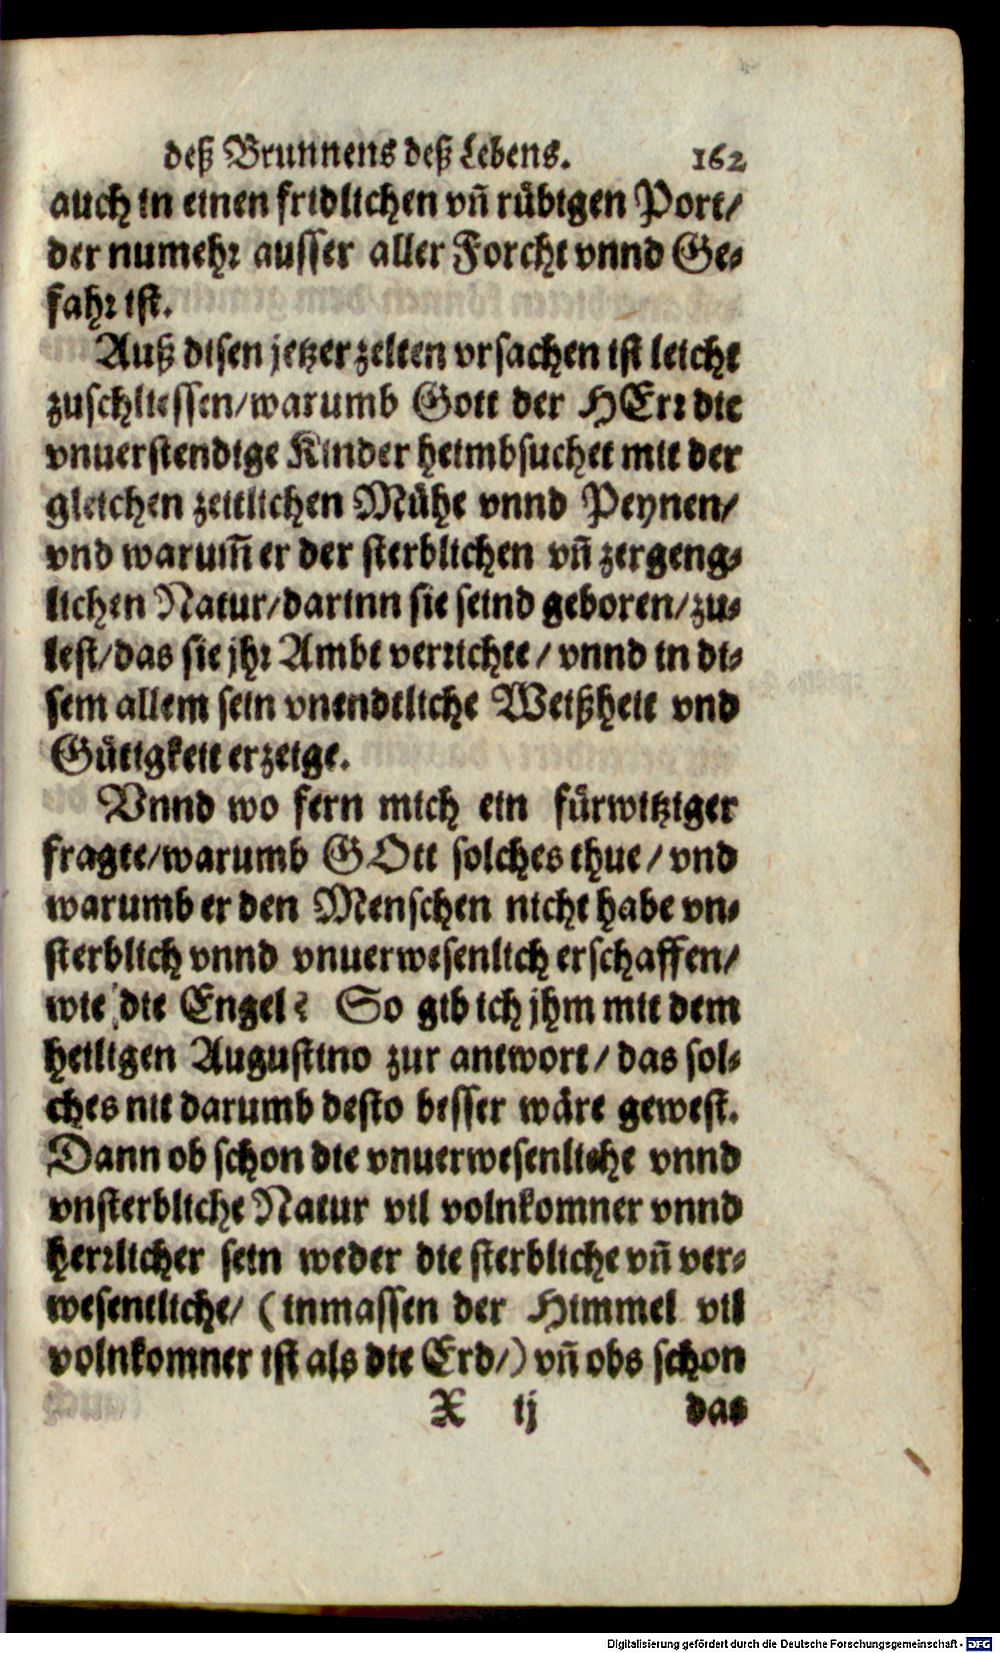 deß Brunnens deß Lebens. 162
auch in einen fridlichen vñ rübigen Port/
der numehr ausser aller Forcht vnnd Ge-
fahr ist.
Auß disen jetzerzelten vrsachen ist leicht
zuschliessen/warumb Gott der HErr die
vnuerstendige Kinder heimbsuchet mit der
gleichen zeitlichen Mühe vnnd Peynen/
vnd warum̃ er der sterblichen vñ zergeng-
lichen Natur/darinn sie seind geboren/zu-
lest/das sie jhr Ambt verrichte/vnnd in di-
sem allem sein vnendtliche Weißheit vnd
Gütigkeit erzeige.
Vnnd wo fern mich ein fürwitziger
fragte/warumb GOtt solches thue/vnd
warumb er den Menschen nicht habe vn-
sterblich vnnd vnuerwesenlich erschaffen/
wie die Engel? So gib ich jhm mit dem
heiligen Augustino zur antwort/das sol-
ches nit darumb desto besser wäre gewest.
Dann ob schon die vnuerwesenliche vnnd
vnsterbliche Natur vil volnkomner vnnd
herrlicher sein weder die sterbliche vñ ver-
wesentliche/(inmassen der Himmel vil
volnkomner ist als die Erd/) vñ obs schon
X ij das
Digitalisierung gefördert durch die Deutsche Forschungsgemeinschaft - DFG